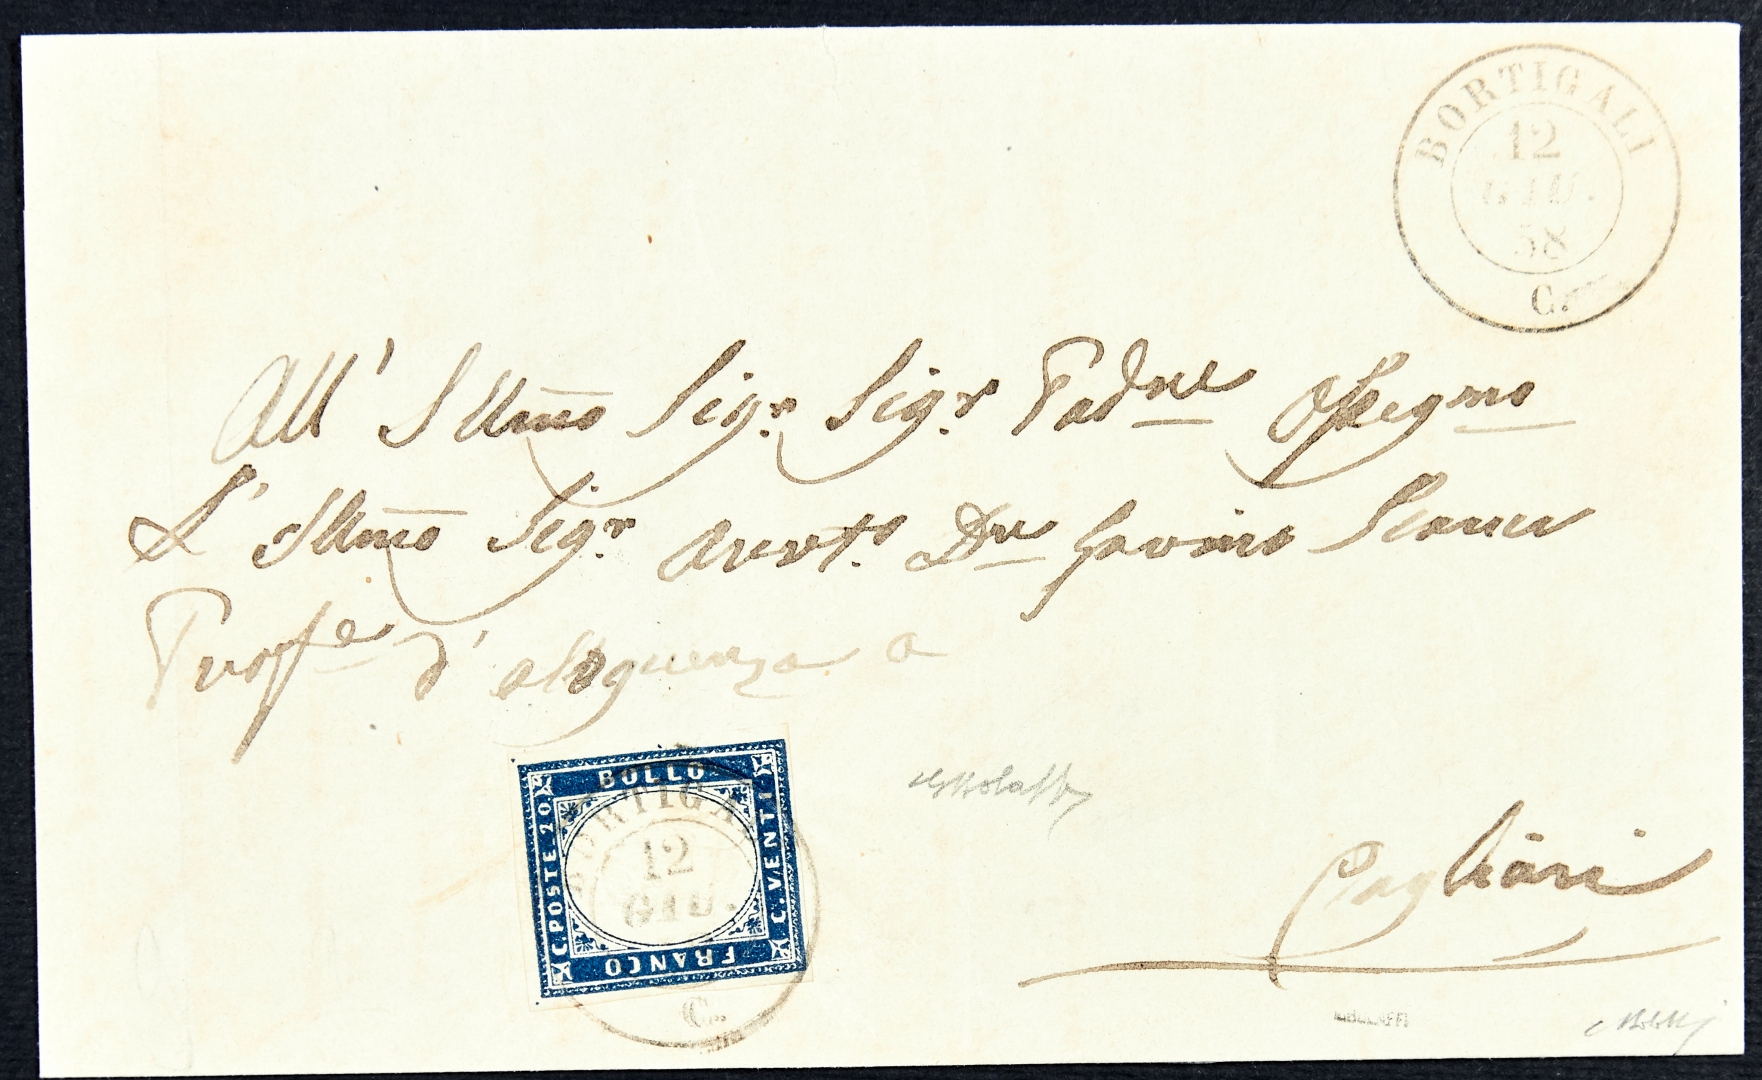 BORTIGALI
12
GIU.
58
C.
All' Illmo Sigr. Sigr. Padne Ossegmo
L' Illmo Sigr. Avvto. Dre Gavino Scano
Profe d' eloquenza a
BOLLO
C. POSTE. 20.
C. VENTI.
FRANCO
BORTIGALI
12
GIU.
C.
Cagliari